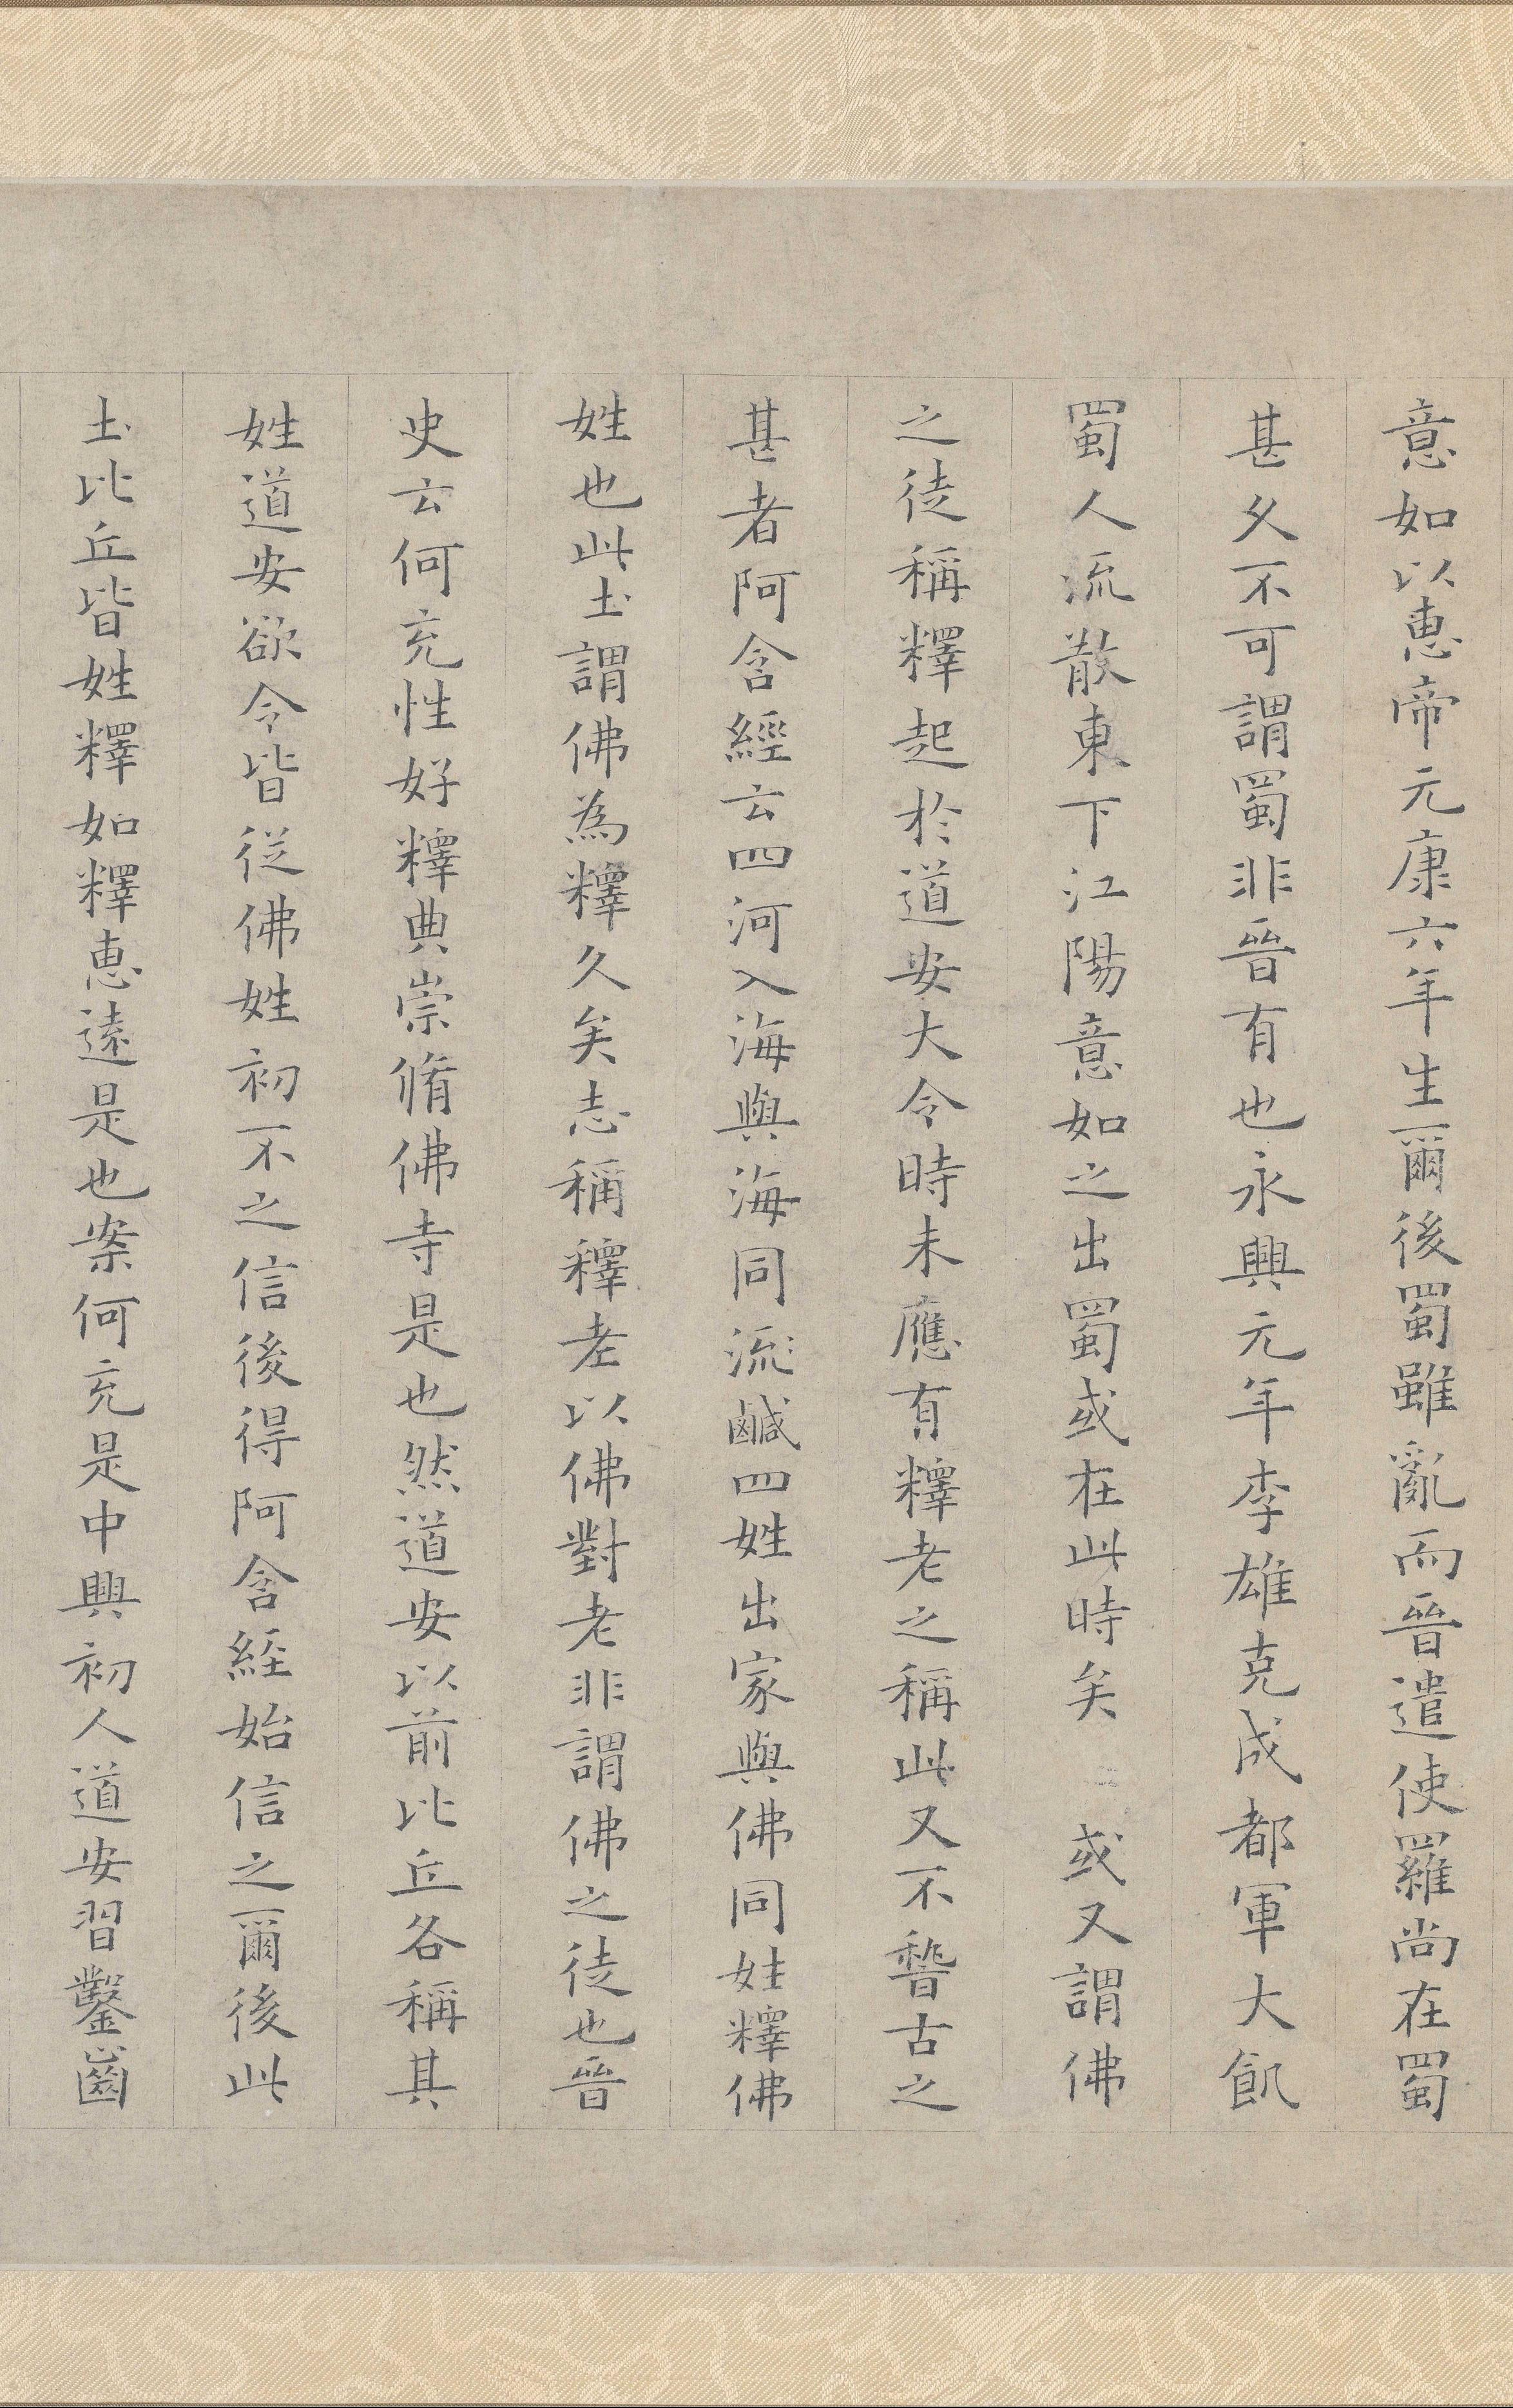 意如以惠帝元康六年生爾後蜀雖亂而晉遣使羅尚在蜀
甚久不可謂蜀非晉有也永興元年李雄克成都軍大飢
蜀人流散東下江陽意如之出蜀或在此時矣或又謂佛
之徒稱釋起於道安大令時未應有釋老之稱此又不稽古之
甚者阿含經云四河入海與海同流鹹四姓出家與佛同姓釋佛
姓也此圡謂佛為釋久矣志稱釋老以佛對老非謂佛之徒也晉
史云何充性好釋典崇脩佛寺是也然道安以前比丘各稱其
姓道安欲令皆從佛姓初不之信後得阿含經始信之爾後此
圡比丘皆姓釋如釋惠遠是也案何充是中興初人道安習鑿齒